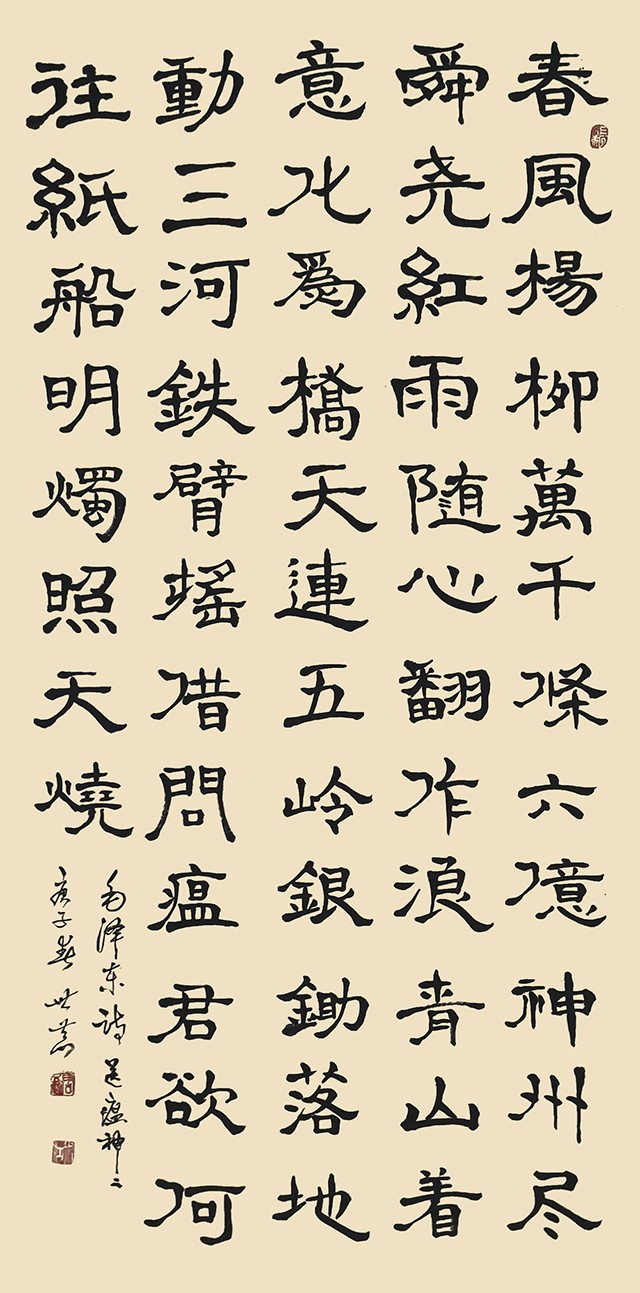 春風楊柳萬千條六億神州尽
舜尧紅雨随心翻作浪青山着
意化爲橋天連五岭銀鋤落地
動三河鉄臂摇借問瘟君欲何
往紙船明燭照天燒
毛泽东诗送瘟神二
庚子春世